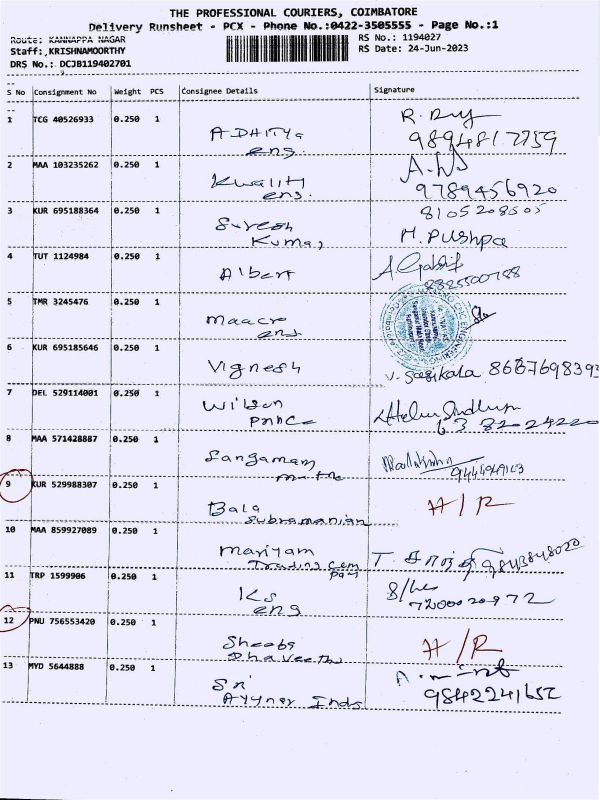 THE PROFESSIONAL COURIERS, COIMBATORE
Delivery Runsheet - PCX - Phone No.:0422-3505555 - Page No.:1
Route: KANNAPPA NAGAR
RS No.: 1194027
Staff:,KRISHNAMOORTHY
RS Date: 24-Jun-2023
DRS No.: DCJB119402701
S No Consignment No Weight PCS Consignee Details Signature
1 TCG 40526933 0.250 1 ADHITYA
eng. 9894817759
2 MAA 103235262 0.250 1 Kwality
ens. 9789456920
3 KUR 695188364 0.250 1 Suresh 8105208505
Kumar M. Pushpa
4 TUT 1124984 0.250 1 Albert
5 TMR 3245476 0.250 1 maacro
ens
6 KUR 695185646 0.250 1 Vignesh V. Sasikala 8687698393
7 DEL 529114001 0.250 1 Wilson
6382024220
8 MAA 571428887 0.250 1 Sangamam
9 KUR 529988307 0.250 1 Bala H/R
Subramanian
10 MAA 859927089 0.250 1 Mariyam 9843848020
Trading Com
pany
11 TRP 1599906 0.250 1 Ks
eng 7200020972
12 PNU 756553420 0.250 1 Sheeba H/R
Dhaveethu
13 MYD 5644888 0.250 1 Sri
Ayynar Inds 9842241652